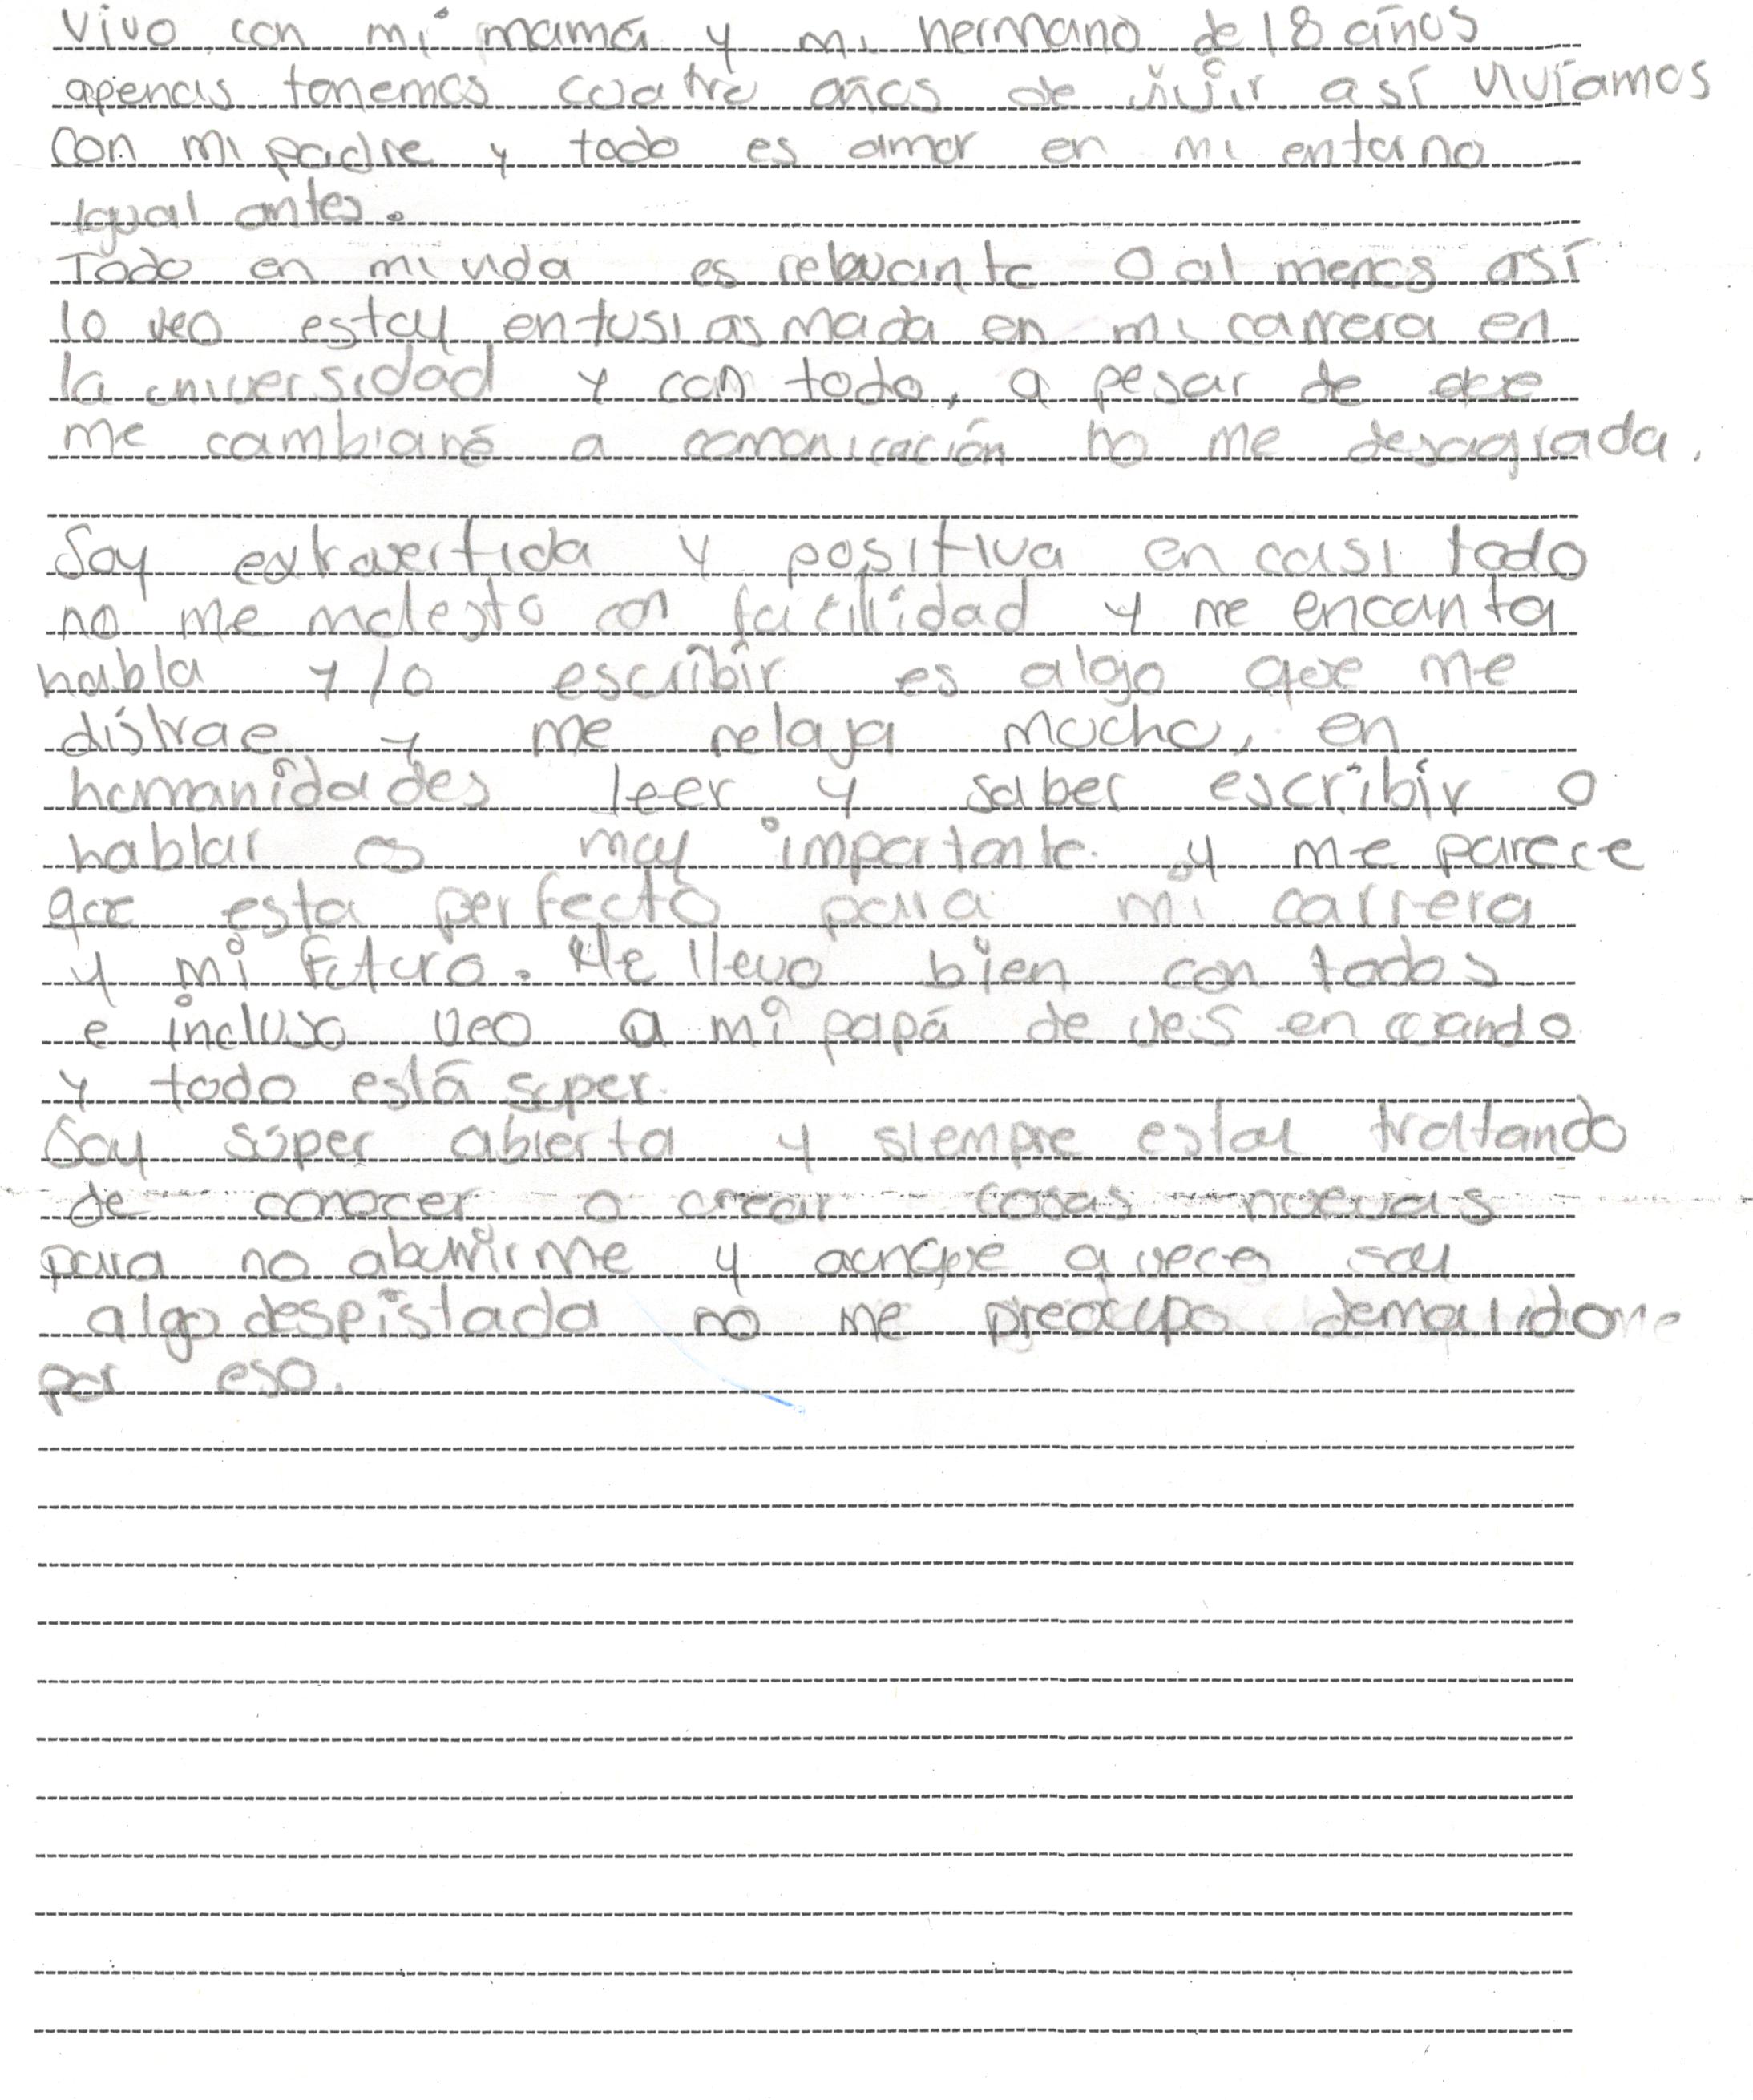 Vivo con mi mamá y mi hermano de 18 años
apenas tenemos cuatro años de vivir así vivíamos
con mi padre y todo es amor en mi entorno
igual antes.
Todo en mi vida es relevante o al menos así
lo veo estoy entusiasmada en mi carrera en
la universidad y con todo, a pesar de que
me cambiaré a comunicación no me desagrada.
Soy extravertida y positiva en casi todo
no me molesto con facillidad y me encanta
habla y/o escribir es algo que me
distrae y me relaja mucho, en
humanidades leer y saber escribir o
hablar es muy importante y me parece
que esta perfecto para mi carrera
y mi futuro. Me llevo bien con todos
e incluso veo a mi papá de ves en cuando
y todo está super.
Soy súper abierta y siempre estoy tratando
de conocer o crear cosas nuevas
para no aburrirme y aunque a vece soy
algo despistada no me preocupo
por eso.